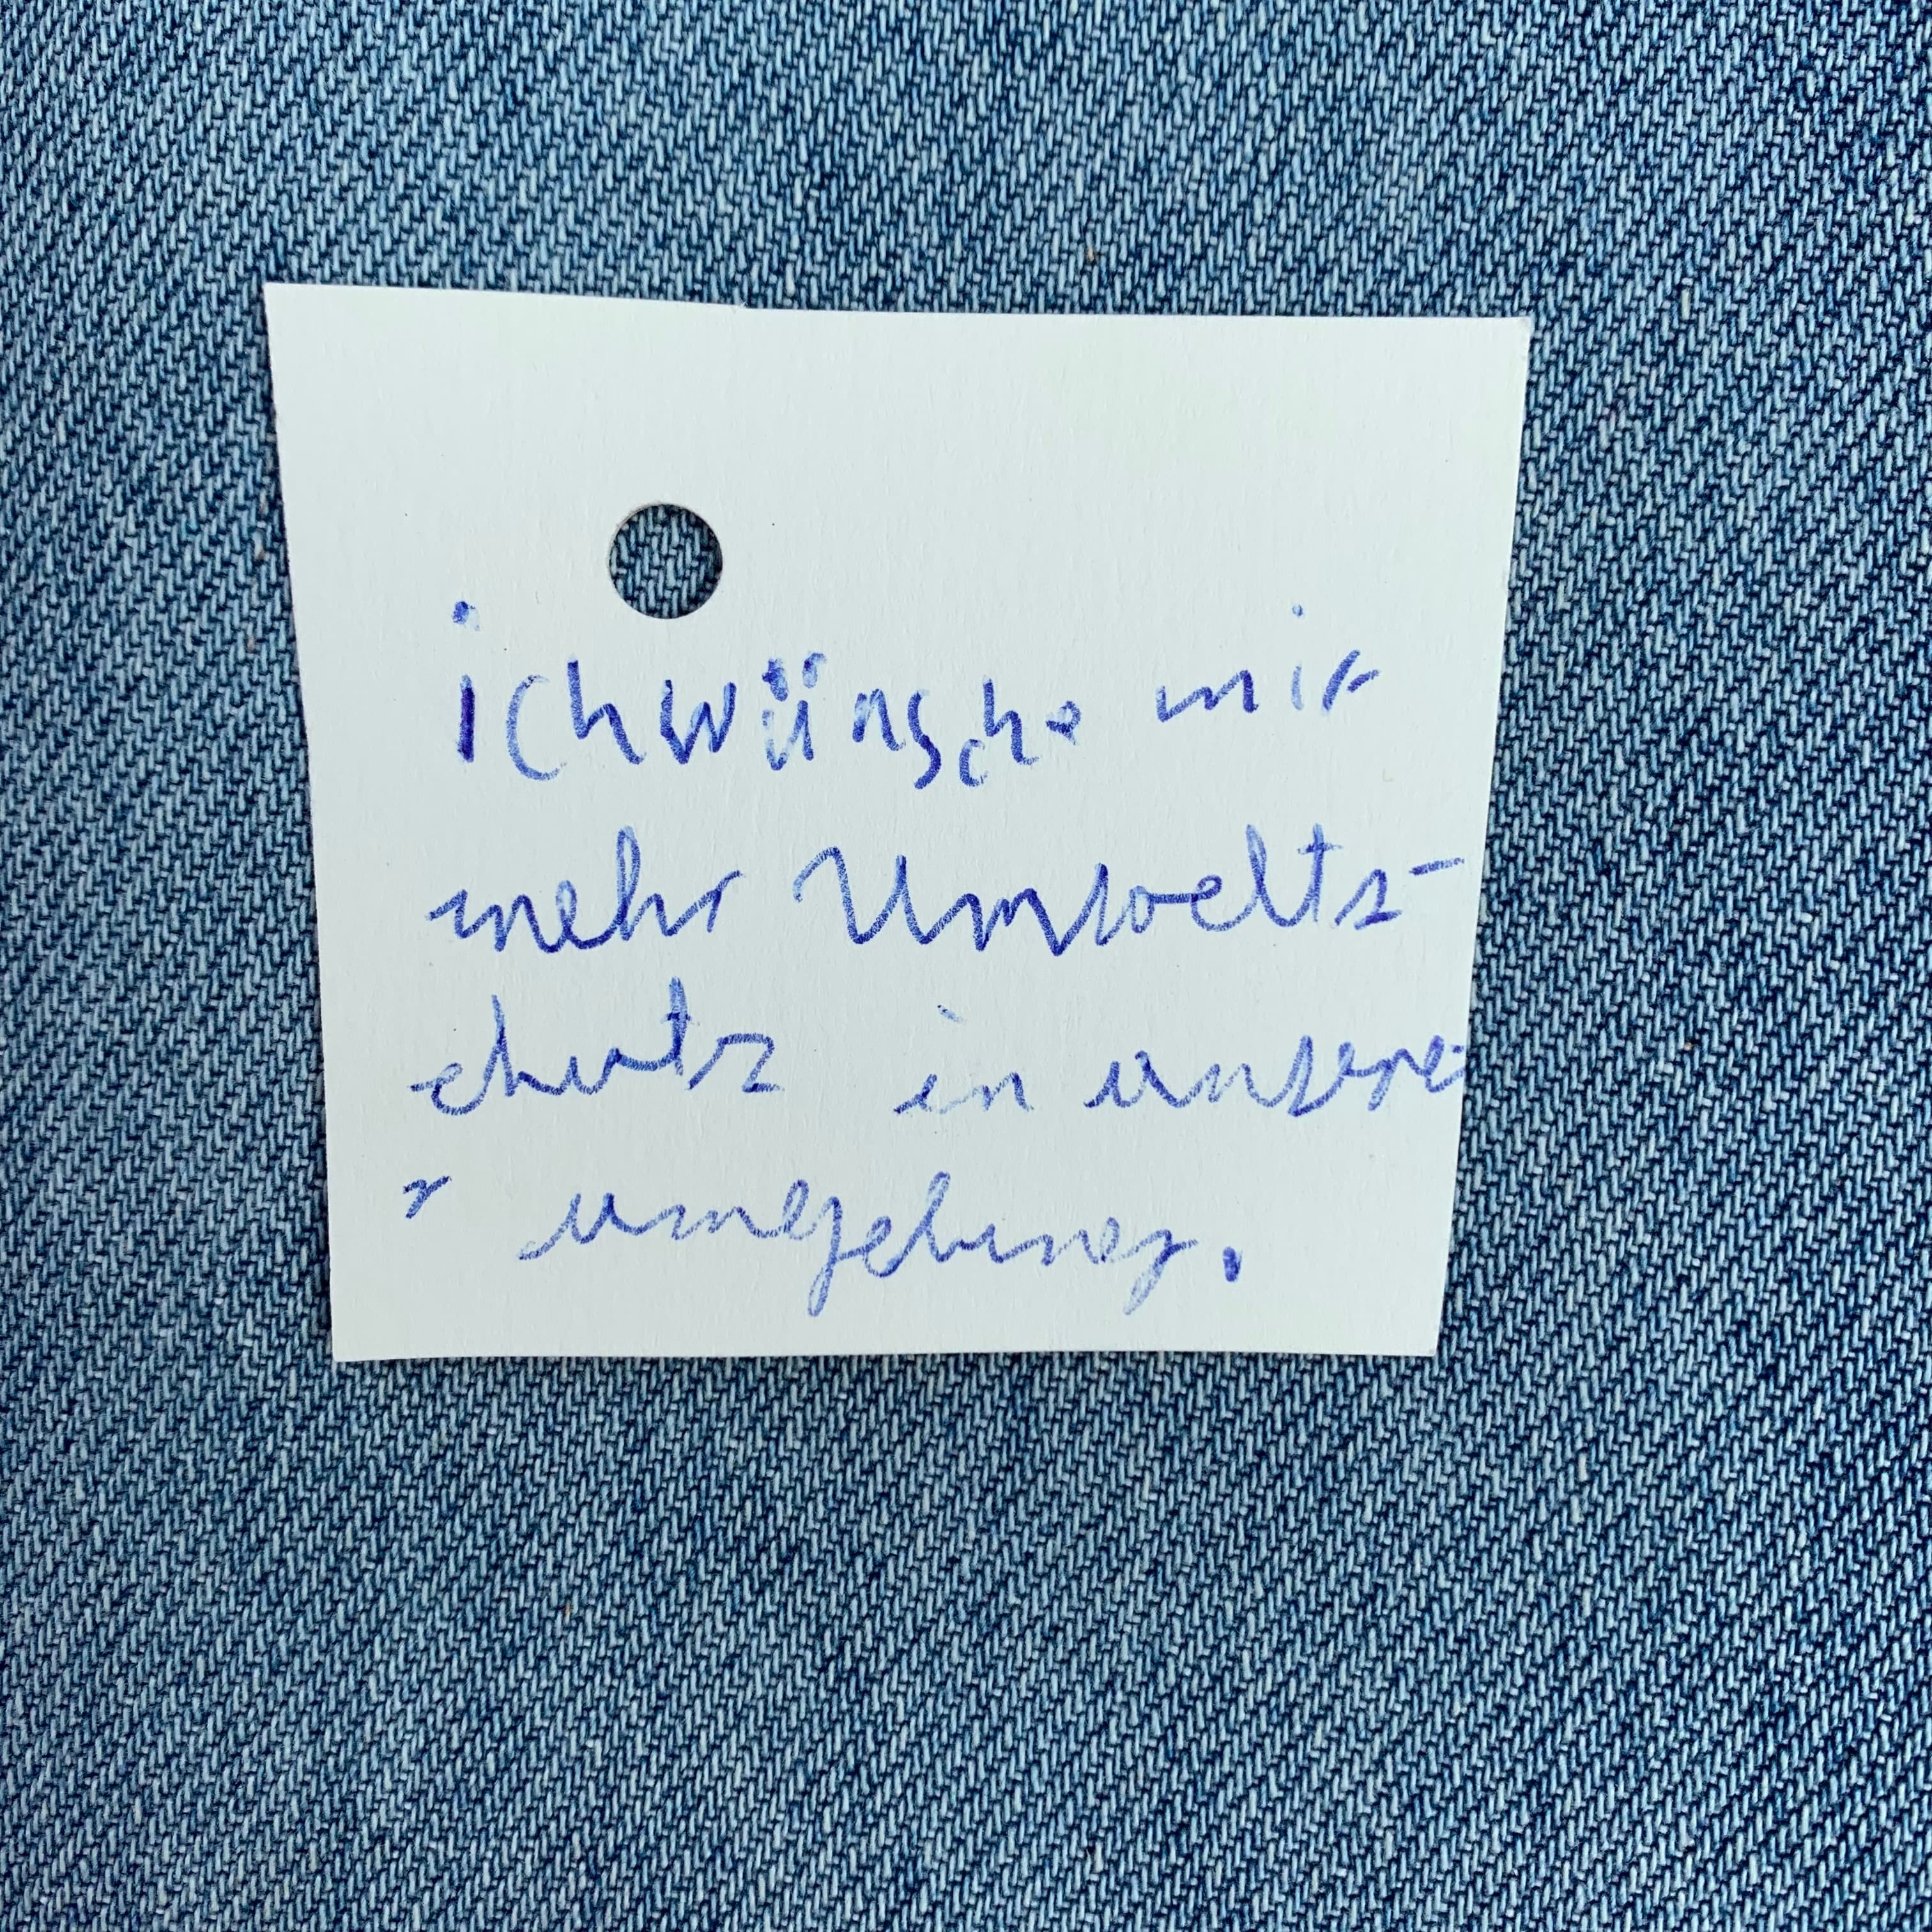 ich wünsche mir
mehr Umwelts-
chutz in unsere-
r umgebung.